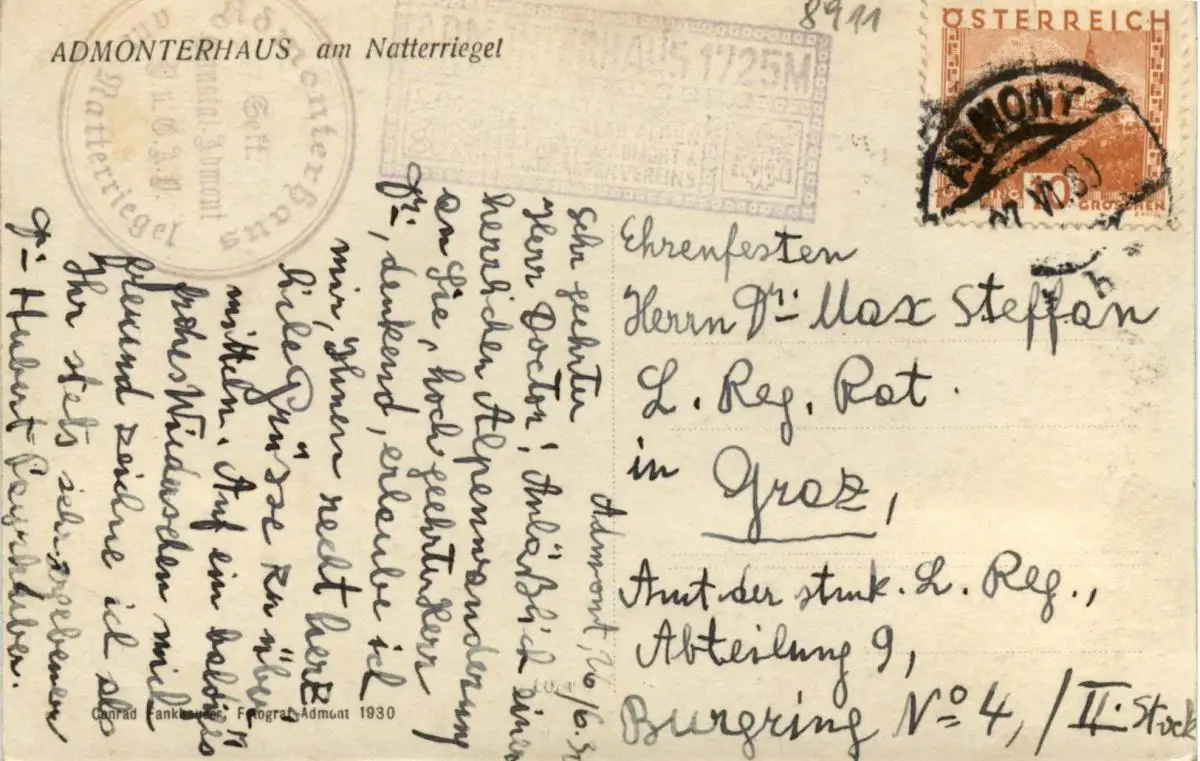 8911
ADMONTERHAUS am Natterriegel
Admonterhaus
Natterriegel
ADMONTERHAUS 1725M
ALPENVEREINS
ÖSTERREICH
10
GROSCHEN
ADMONT
VI. 30
Admont, 26/6. 30
Sehr geehrter
Herr Doctor! Anläßlich einer
herrlichen Alpenwanderung
an Sie, hochgeehrter Herr
Dr:, denkend, erlaube ich
mir, Ihnen recht herz-
liche Grüsse zu über-
mitteln. Auf ein baldiges
frohes Wiedersehen mich
freuend zeichne ich als
Ihr stets sehr ergebener
Dr: Hubert
Ehrenfesten
Herrn Dr: Max Steffan
L. Reg. Rat.
in Graz,
Amt der L. Reg.,
Abteilung 9,
Burgring No 4, / II. Stock
Conrad Fankhauser, Fotograf Admont 1930